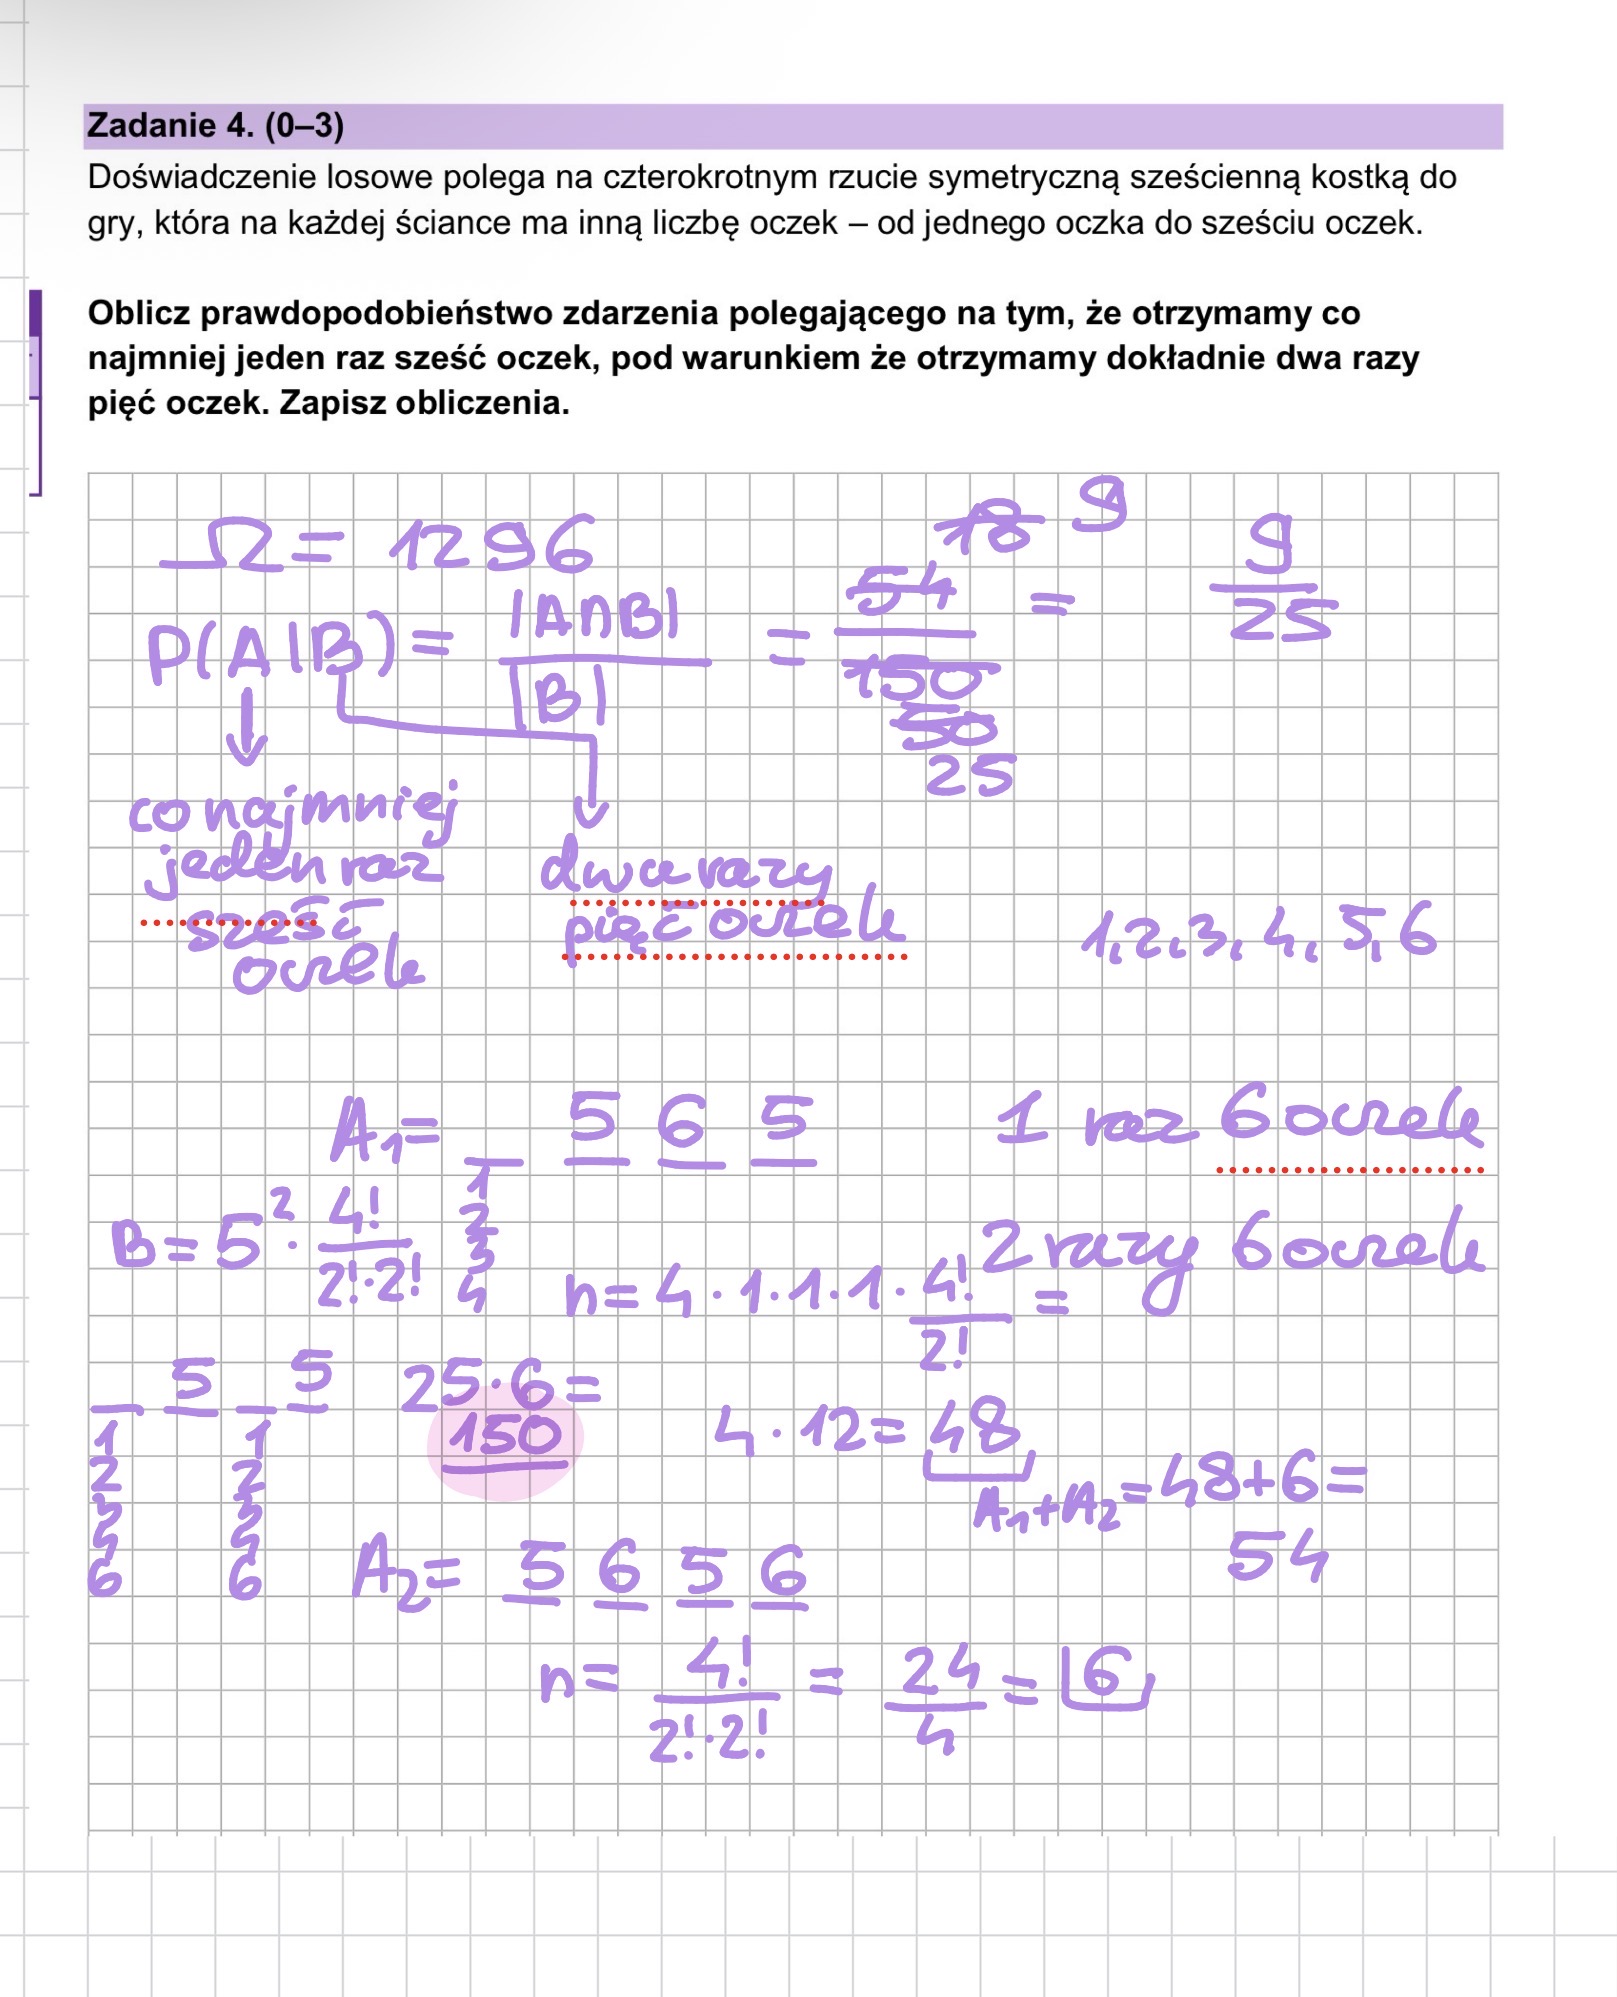 Zadanie 4. (0–3)
Doświadczenie losowe polega na czterokrotnym rzucie symetryczną sześcienną kostką do
gry, która na każdej ściance ma inną liczbę oczek – od jednego oczka do sześciu oczek.
Oblicz prawdopodobieństwo zdarzenia polegającego na tym, że otrzymamy co
najmniej jeden raz sześć oczek, pod warunkiem że otrzymamy dokładnie dwa razy
pięć oczek. Zapisz obliczenia.
Ω = 1296
P(A|B) = |A∩B| / |B| = 54 / 150 = 9 / 25
18 9
50
25
co najmniej
jeden raz
sześć
oczek
dwa razy
pięć oczek
1, 2, 3, 4, 5, 6
A₁ = _ 5 6 5
1
2
3
4
1 raz 6 oczek
2 razy 6 oczek
B = 5² · 4! / 2!·2!
n = 4 · 1 · 1 · 1 · 4! / 2! =
_ 5 _ 5
1 1
2 2
3 3
4 4
6 6
25 · 6 =
150
4 · 12 = 48
A₁ + A₂ = 48 + 6 =
54
A₂ = 5 6 5 6
n = 4! / 2!·2! = 24 / 4 = 6